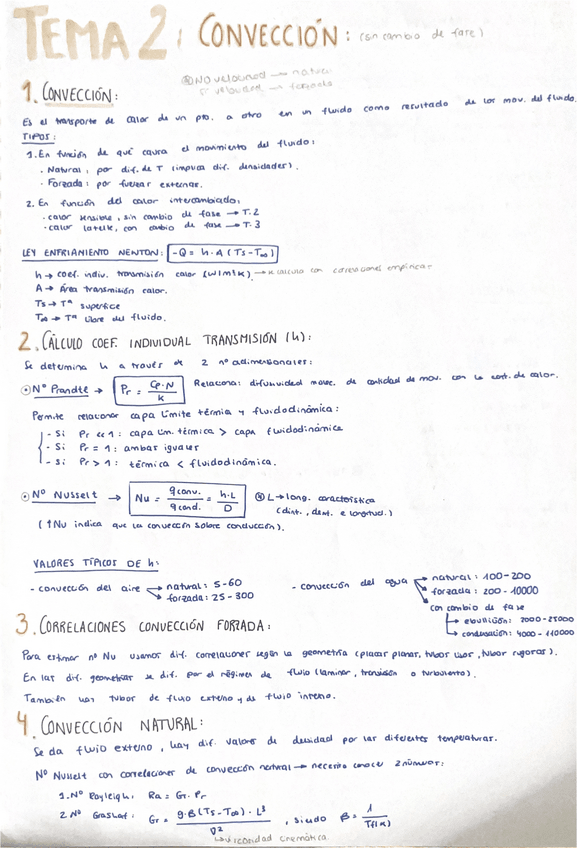 TEMA 2: CONVECCIÓN: (sin cambio de fase)
⊛ No velocidad → natural
Sí velocidad → forzada
1. CONVECCIÓN:
Es el transporte de calor de un pto. a otro en un fluido como resultado de los mov. del fluido.
TIPOS:
1. En función de qué causa el movimiento del fluido:
· Natural, por dif. de T (implica dif. densidades).
· Forzada: por fuerzas externas.
2. En función del calor intercambiado:
· calor sensible, sin cambio de fase → T.2
· calor latente, con cambio de fase → T.3
LEY ENFRIAMIENTO NEWTON: -Q = h·A (Ts - T∞)
h → coef. indiv. transmisión calor (W/m²k) → se calcula con correlaciones empíricas
A → Área transmisión calor.
Ts → Tª superficie
T∞ → Tª libre del fluido.
2. CÁLCULO COEF. INDIVIDUAL TRANSMISIÓN (h):
Se determina h a través de 2 nº adimensionales:
⊙ Nº Prandtl → Pr = Cp·N / K Relaciona: difusividad molec. de cantidad de mov. con la cant. de calor.
Permite relacionar capa límite térmica y fluidodinámica:
- Si Pr << 1: capa lím. térmica > capa fluidodinámica
- Si Pr = 1: ambas iguales
- Si Pr > 1: térmica < fluidodinámica.
⊙ Nº Nusselt → Nu = qconv. / qcond. = h·L / D ⊛ L → long. característica
(dist., diam. e longitud.)
(↑Nu indica que la convección sobre conducción).
VALORES TÍPICOS DE h:
- convección del aire → natural: 5-60
→ forzada: 25-300
- convección del agua → natural: 100-200
→ forzada: 200-10000
con cambio de fase
→ ebullición: 2000-25000
→ condensación: 4000-110000
3. CORRELACIONES CONVECCIÓN FORZADA:
Para estimar nº Nu usamos dif. correlaciones según la geometría (placas planas, tubos lisos, tubos rugosos).
En las dif. geometrías se dif. por el régimen de flujo (laminar, transición o turbulento).
También hay tubos de flujo externo y de flujo interno.
4. CONVECCIÓN NATURAL:
Se da flujo externo, hay dif. valores de densidad por las diferentes temperaturas.
Nº Nusselt con correlaciones de convección natural → necesito conocer 2 números:
1. Nº Rayleigh, Ra = Gr·Pr
2. Nº Grashof: Gr = g·B(Ts - T∞)·L³ / ν² , siendo β = 1 / Tf(K)
↳ viscosidad cinemática.